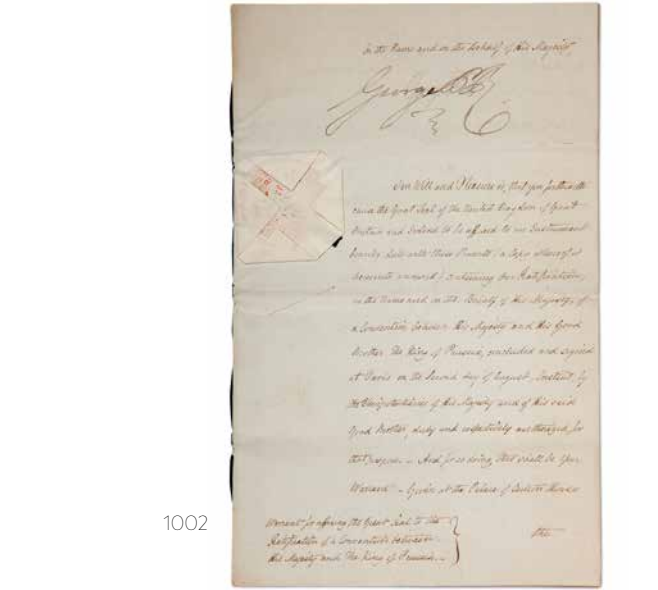 In the Name and on the Behalf of His Majesty
George P R
Our Will and Pleasure is, that you forthwith
cause the Great Seal of the United Kingdom of Great
Britain and Ireland to be affixed to an Instrument
bearing date with these Presents (a Copy whereof is
hereunto annexed) containing Our Ratification,
in the Name and on the Behalf of His Majesty, of
a Convention between His Majesty and His Good
Brother The King of Prussia, concluded and signed
at Paris on the Second day of August Instant, by
the Plenipotentiaries of His Majesty and of His said
Good Brother, duly and respectively authorized for
that purpose. – And for so doing, this shall be Your
Warrant. – Given at the Palace of Carlton House
the
1002
Warrant for affixing the Great Seal to the
Ratification of a Convention between
His Majesty and The King of Prussia. –